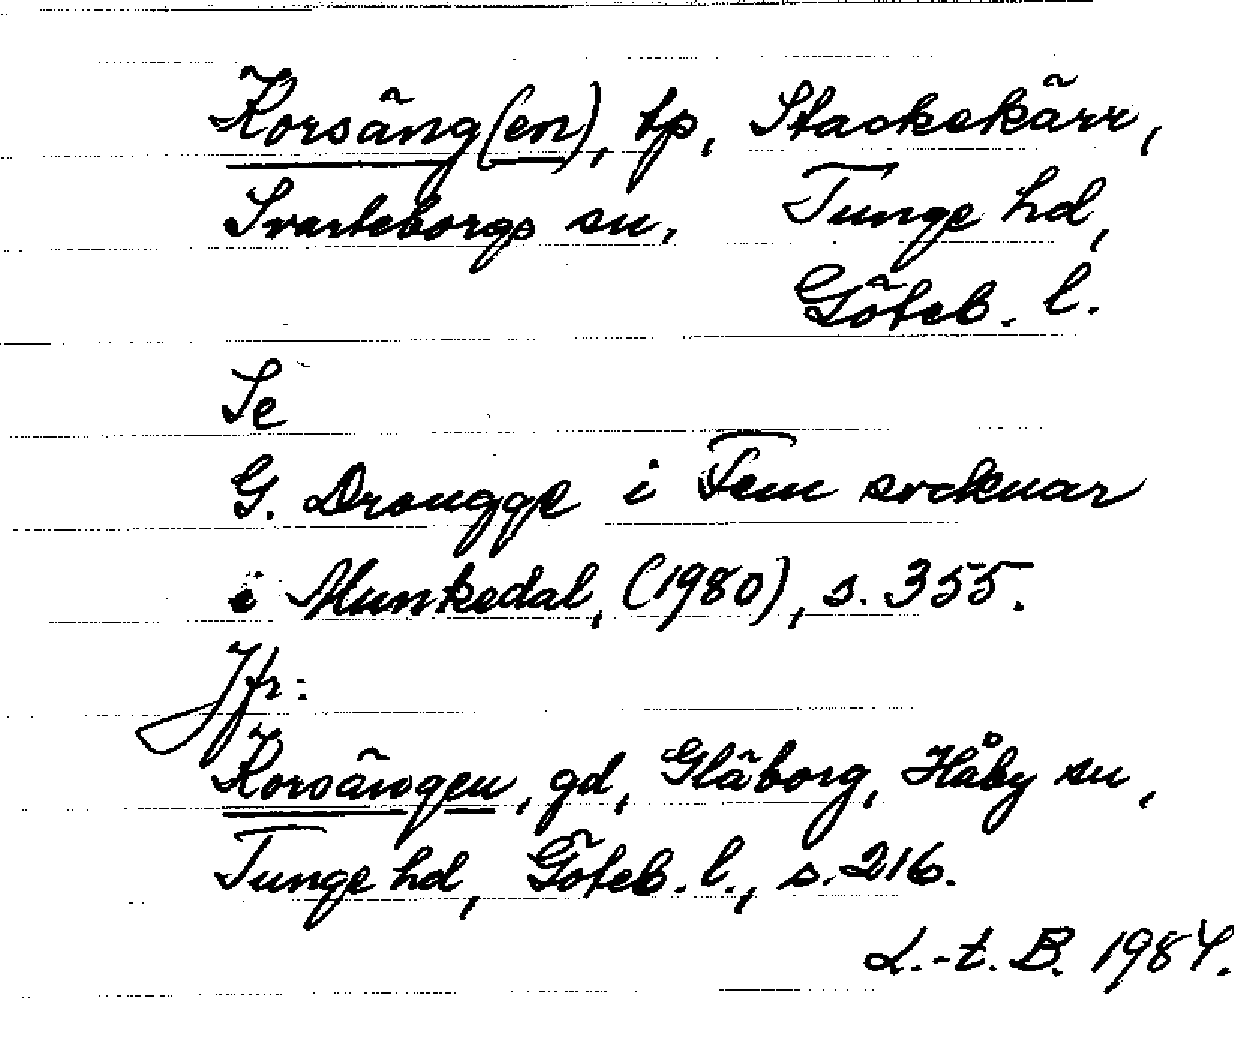 Korsäng(en), tp, Stackekärr,
Svarteborgs sn, Tunge hd,
Göteb. l.
Se
G. Drougge i Fem socknar
i Munkedal, (1980), s. 355.
Jfr:
Korsängen, gd, Gläborg, Håby sn,
Tunge hd, Göteb. l., s. 216.
L.-t. B. 1984.